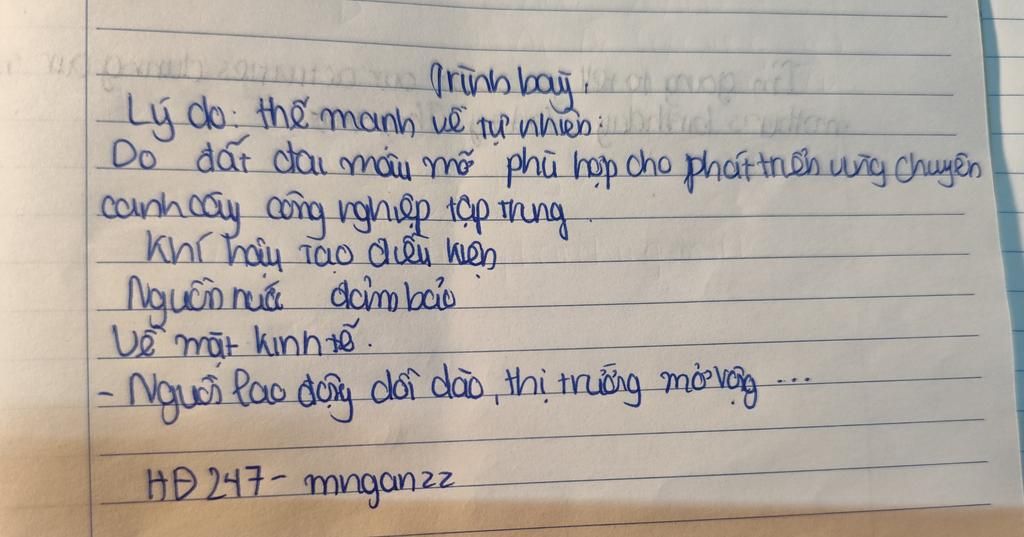 Trình bày.
Lý do: thế mạnh về tự nhiên:
Do đất đai màu mỡ phù hợp cho phát triển vùng chuyên
canh cây công nghiệp tập trung.
Khí hậu tạo điều kiện
Nguồn nước đảm bảo
Về mặt kinh tế.
- Người lao động dồi dào, thị trường mở rộng ...
HĐ247- mnganzz